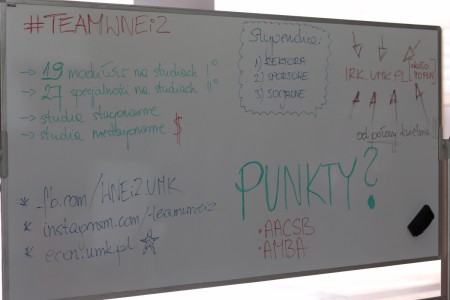 #TEAMWNEiZ
→ 19 modułów na studiach I°
→ 27 specjalności na studiach II°
→ studia stacjonarne
→ studia niestacjonarne $
* fb.com/WNEiZ.UMK
* instagram.com/teamwneiz
* econ.umk.pl
Stypendia:
1) REKTORA
2) SPORTOWE
3) SOCJALNE
IRK.UMK.PL
od połowy kwietnia
PUNKTY?
• AACSB
• AMBA